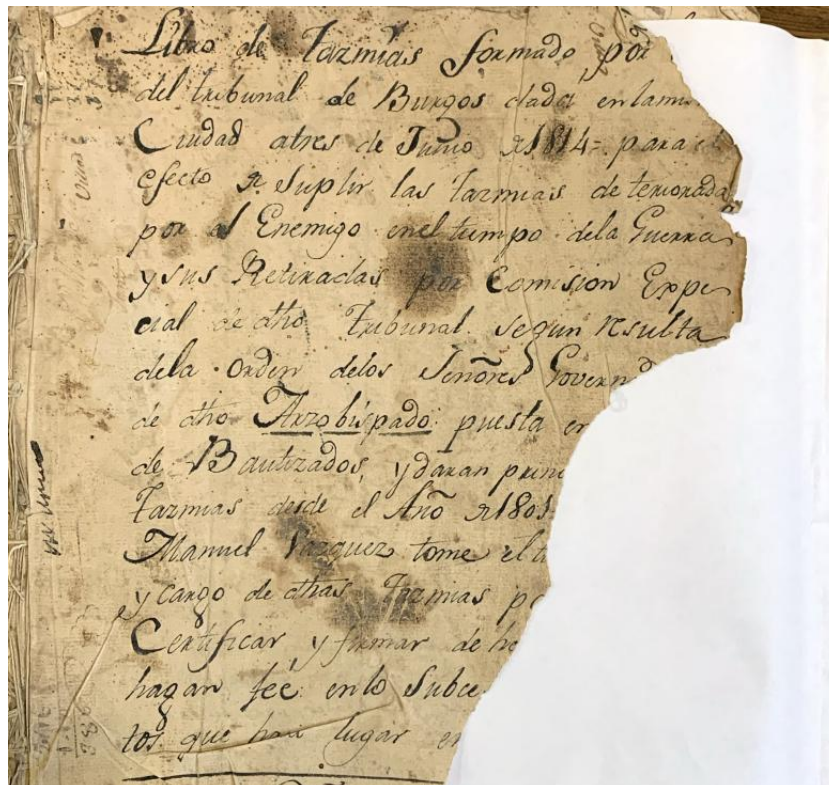 Libro de Tazmias formado, por
del tribunal de Burgos dada en la
Ciudad atres de Junio de 1814= para el
efecto de Suplir las tazmias deterioradas
por el Enemigo en el tiempo dela Guerra
y sus Retiradas por Comision Expe
cial de dho Tribunal segun resulta
dela Orden delos Señores Govern
de dho Arzobispado puesta en
de Bautizados, y daran princ
Tazmias desde el Año de 1801
Manuel Vazquez tome el
y cargo de dhas Tazmias p
Certificar y firmar de
hagan feé en lo Subce
tos que haia lugar en